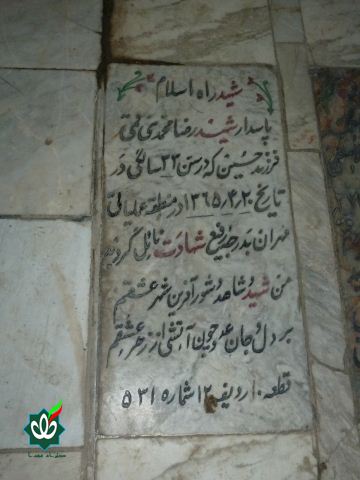 شهید راه اسلام
پاسدار شهید رضا محمدی قمی
فرزند حسین که در سن ۲۳ سالگی در
تاریخ ۱۳۶۵.۴.۲۰ در منطقه عملیاتی
مهران بدرجه رفیع شهادت نائل گردید
من شهید شاهد شور آفرین شهر عشقم
بر دل و جان عدو چون آتشی از قهر عشقم
قطعه ۱۰ ردیف ۱۲ شماره ۵۳۱